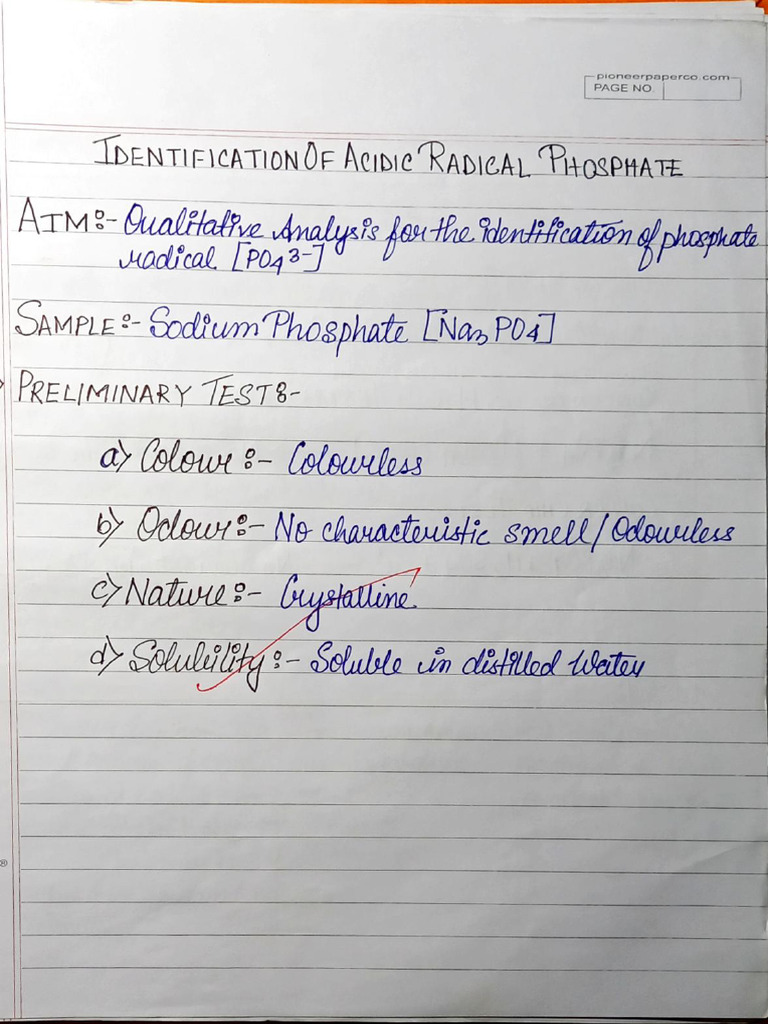 pioneerpaperco.com
PAGE NO.
IDENTIFICATION OF ACIDIC RADICAL PHOSPHATE
AIM:- Qualitative Analysis for the identification of phosphate
radical [PO4 3-]
SAMPLE:- Sodium Phosphate [Na3 PO4]
PRELIMINARY TEST:-
a) Colour:- Colourless
b) Odour:- No characteristic smell/Odourless
c) Nature:- Crystalline
d) Solubility:- Soluble in distilled Water
®